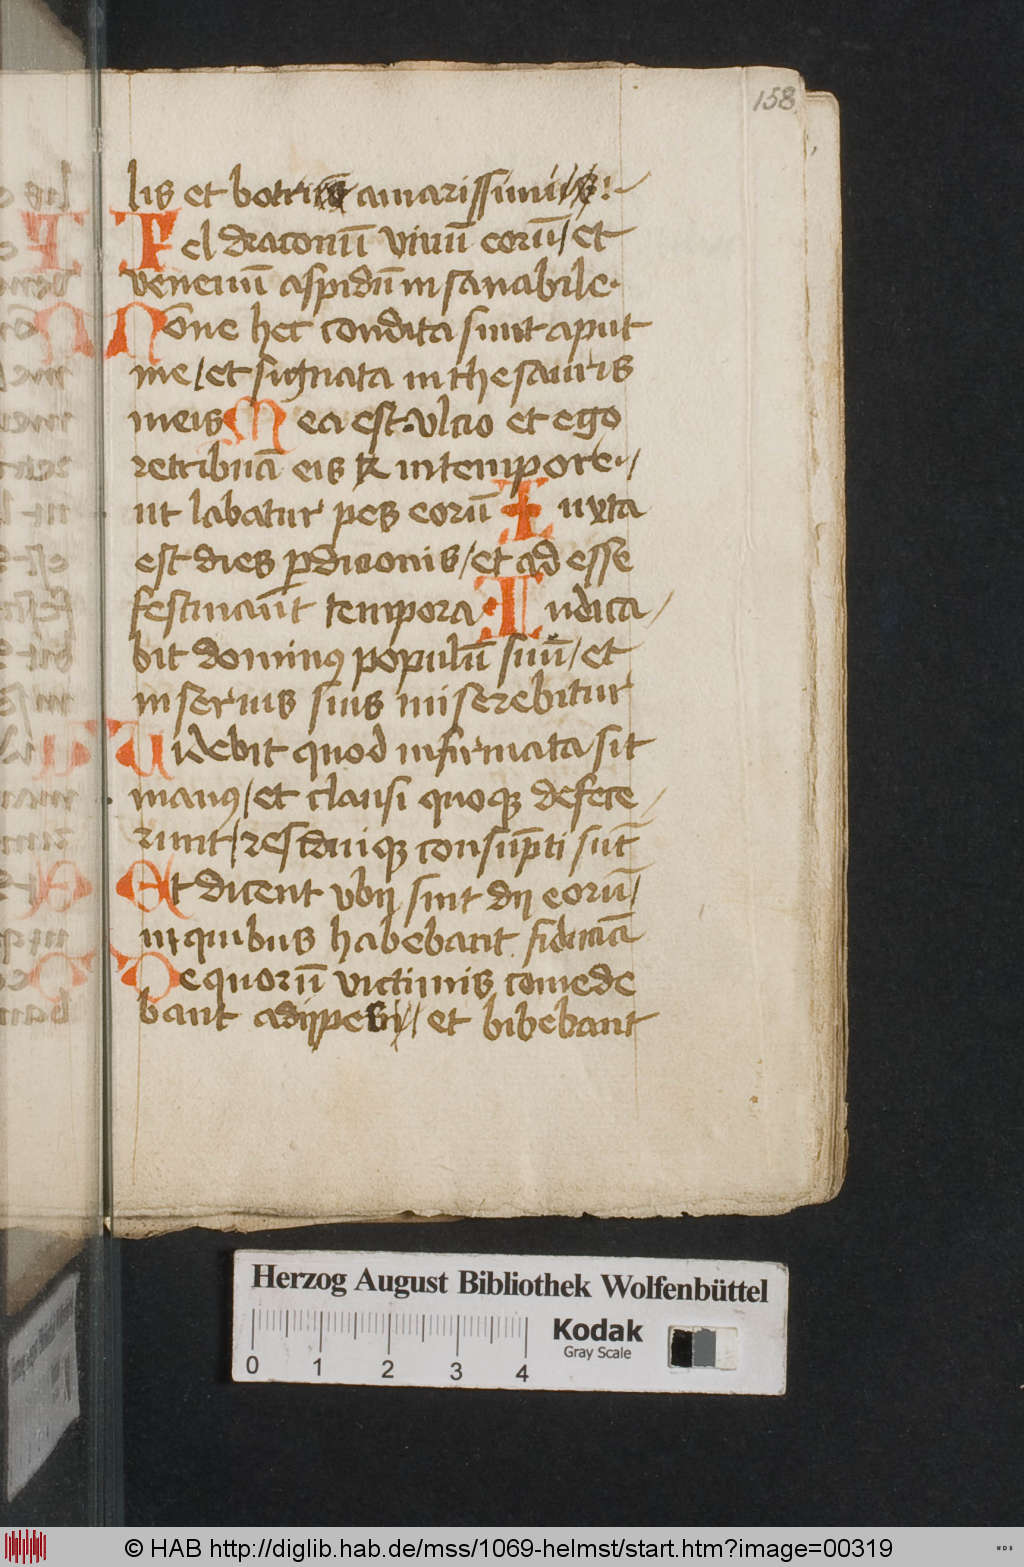 158
lis et botrus amarissimus
Fel draconū vinū eorū / et
venenū aspidū insanabile.
Nōne hec condita sunt aput
me / et signata in thesauris
meis Mea est vlcio et ego
retribuā eis in tempore
ut labatur pes eorū Iuxta
est dies ꝑdicionis / et adesse
festināt tempora Iudica
bit dominꝰ populū suū / et
in seruis suis miserebitur
Uidebit quod infirmata sit
manꝰ / et clausi quoqꝫ defece
runt / residuiqꝫ consūpti sūt
Et dicent vbi sunt dij eorū /
in quibus habebant fiduciā
De quorū victimis comede
bant adipes / et bibebant
Herzog August Bibliothek Wolfenbüttel
Kodak
Gray Scale
0 1 2 3 4
© HAB http://diglib.hab.de/mss/1069-helmst/start.htm?image=00319